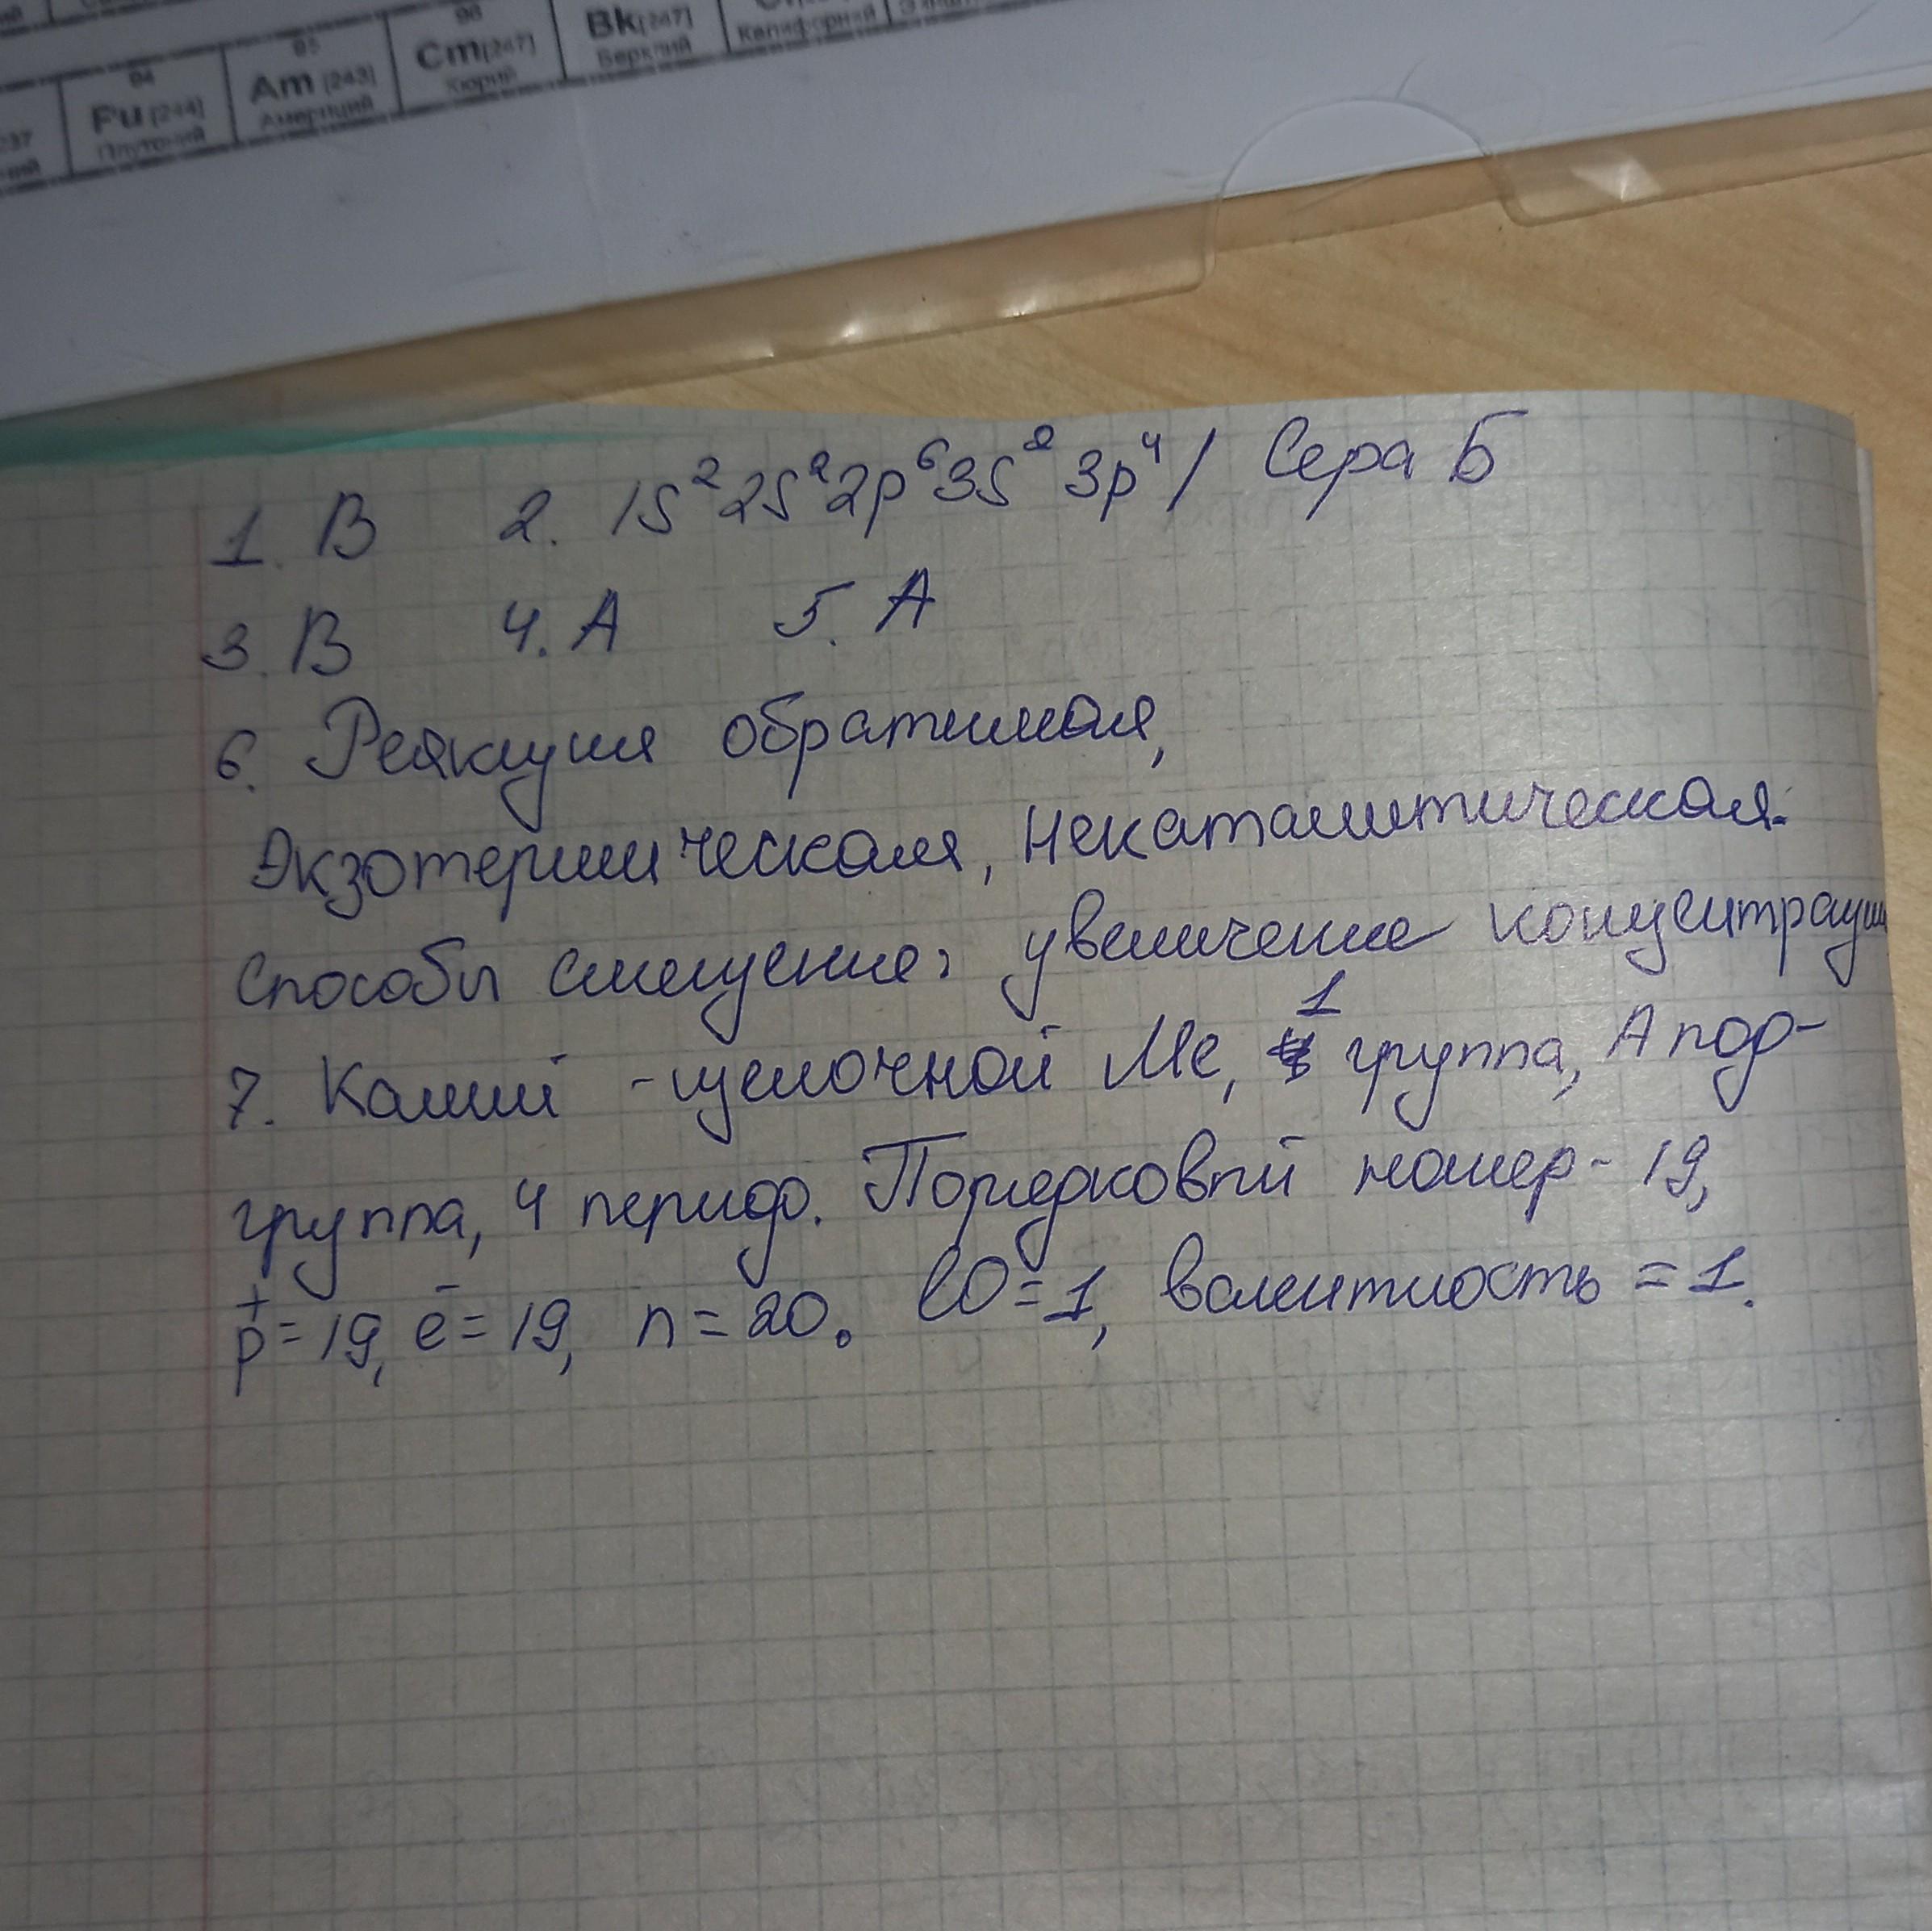 94
95
96
Pu [244]
Am [243]
Cm [247]
Bk [247]
237
Плутоний
Америций
Кюрий
Берклий
Калифорний
1. В 2. 1s² 2s² 2p⁶ 3s² 3p⁴ / Сера Б
3. В 4. А 5. А
6. Реакция обратимая,
Экзотермическая, некаталитическая.
Способы смещения: увеличение концентрации
7. Калий - щелочной Ме, 1 группа, А под-
группа, 4 период. Порядковый номер - 19,
p⁺ = 19, e⁻ = 19, n = 20. СО = 1, валентность = 1.